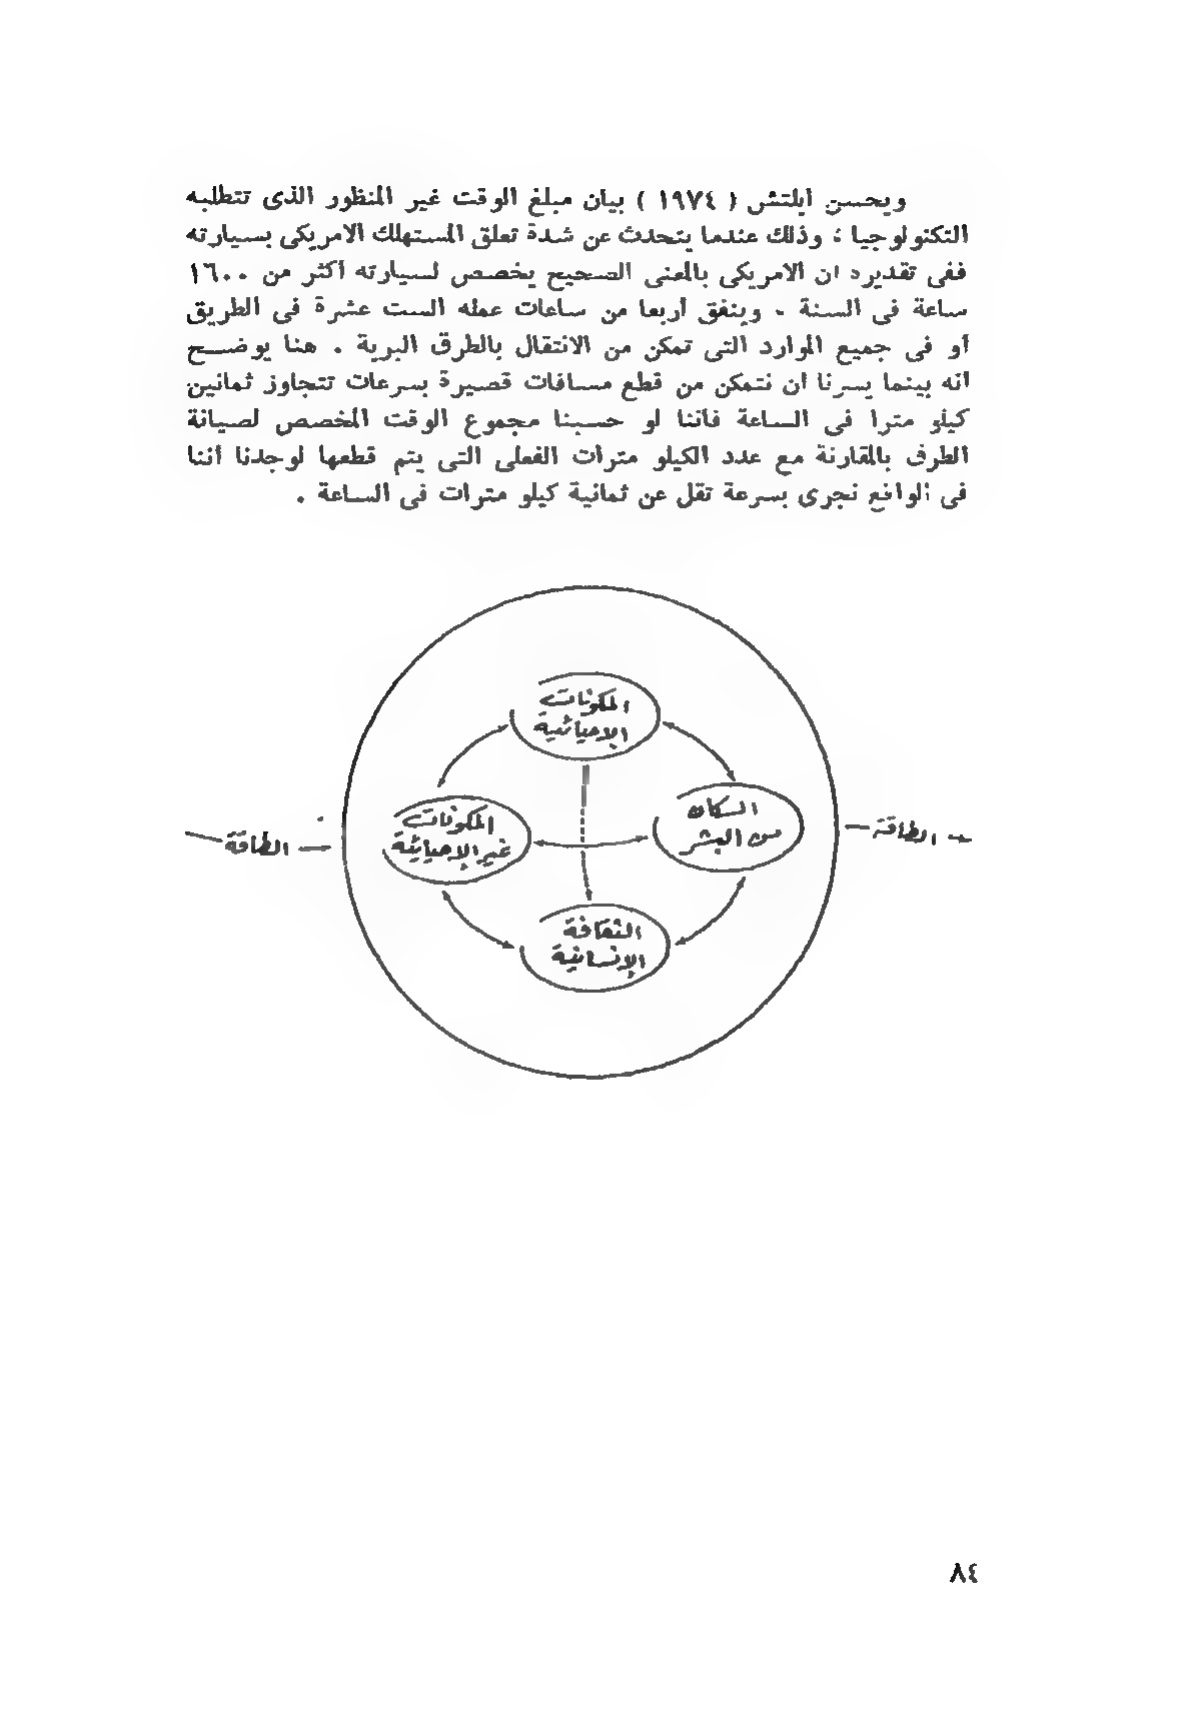 ويحسن ايلتش ( ١٩٧٤ ) بيان مبلغ الوقت غير المنظور الذى تتطلبه
التكنولوجيا ؛ وذلك عندما يتحدث عن شدة تعلق المستهلك الامريكى بسيارته
ففى تقديره ان الامريكى بالمعنى الصحيح يخصص لسيارته أكثر من ١٦٠٠
ساعة فى السنة . وينفق أربعا من ساعات عمله الست عشرة فى الطريق
أو فى جميع الموارد التى تمكن من الانتقال بالطرق البرية . هنا يوضح
انه بينما يسرنا ان نتمكن من قطع مسافات قصيرة بسرعات تتجاوز ثمانين
كيلو مترا فى الساعة فاننا لو حسبنا مجموع الوقت المخصص لصيانة
الطرق بالمقارنة مع عدد الكيلو مترات الفعلى التى يتم قطعها لوجدنا أننا
فى الواقع نجرى بسرعة تقل عن ثمانية كيلو مترات فى الساعة .
المكونات
الإحيائية
السكان
من البشر
المكونات
غير الإحيائية
الطاقة
الطاقة
الثقافة
الإنسانية
٨٤